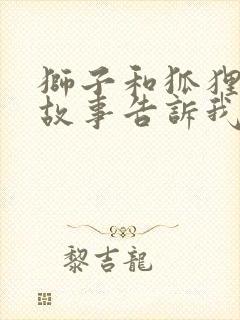 獅子和狐狸
故事告訴我
黎吉龍